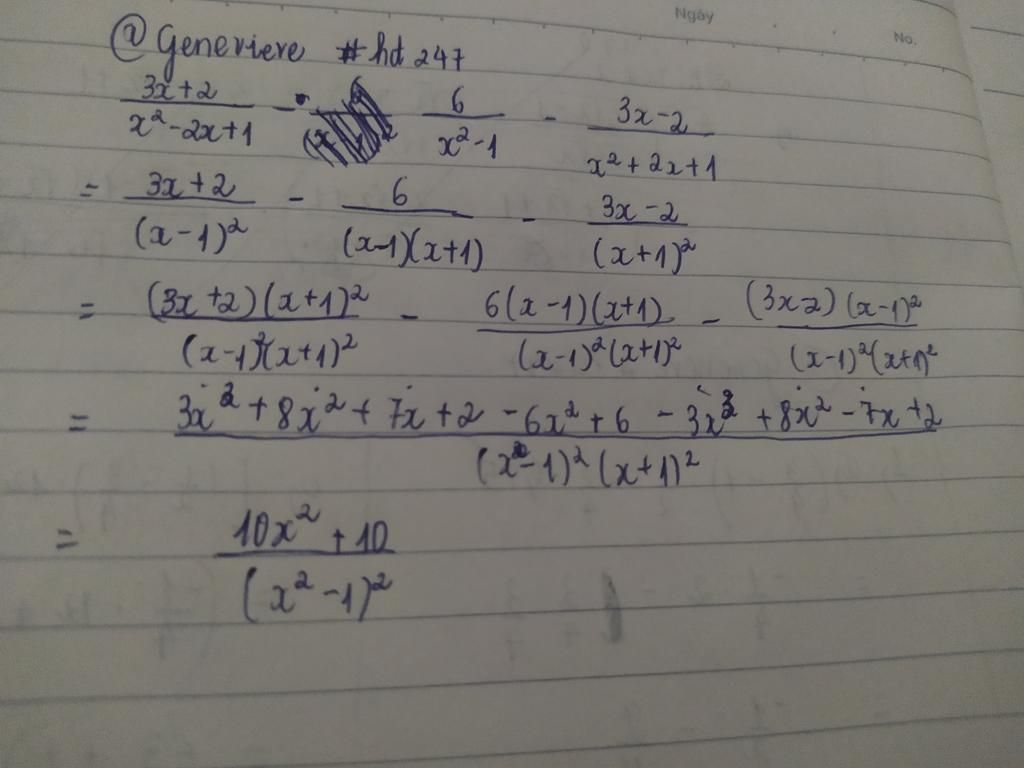 Ngày
No.
@Genevieve #hd 247
(3x+2)/(x²-2x+1) - 6/(x²-1) - (3x-2)/(x²+2x+1)
= (3x+2)/(x-1)² - 6/((x-1)(x+1)) - (3x-2)/(x+1)²
= (3x+2)(x+1)²/((x-1)²(x+1)²) - 6(x-1)(x+1)/((x-1)²(x+1)²) - (3x-2)(x-1)²/((x-1)²(x+1)²)
= (3x³+8x²+7x+2-6x²+6-3x³+8x²-7x+2)/((x-1)²(x+1)²)
= (10x²+10)/(x²-1)²